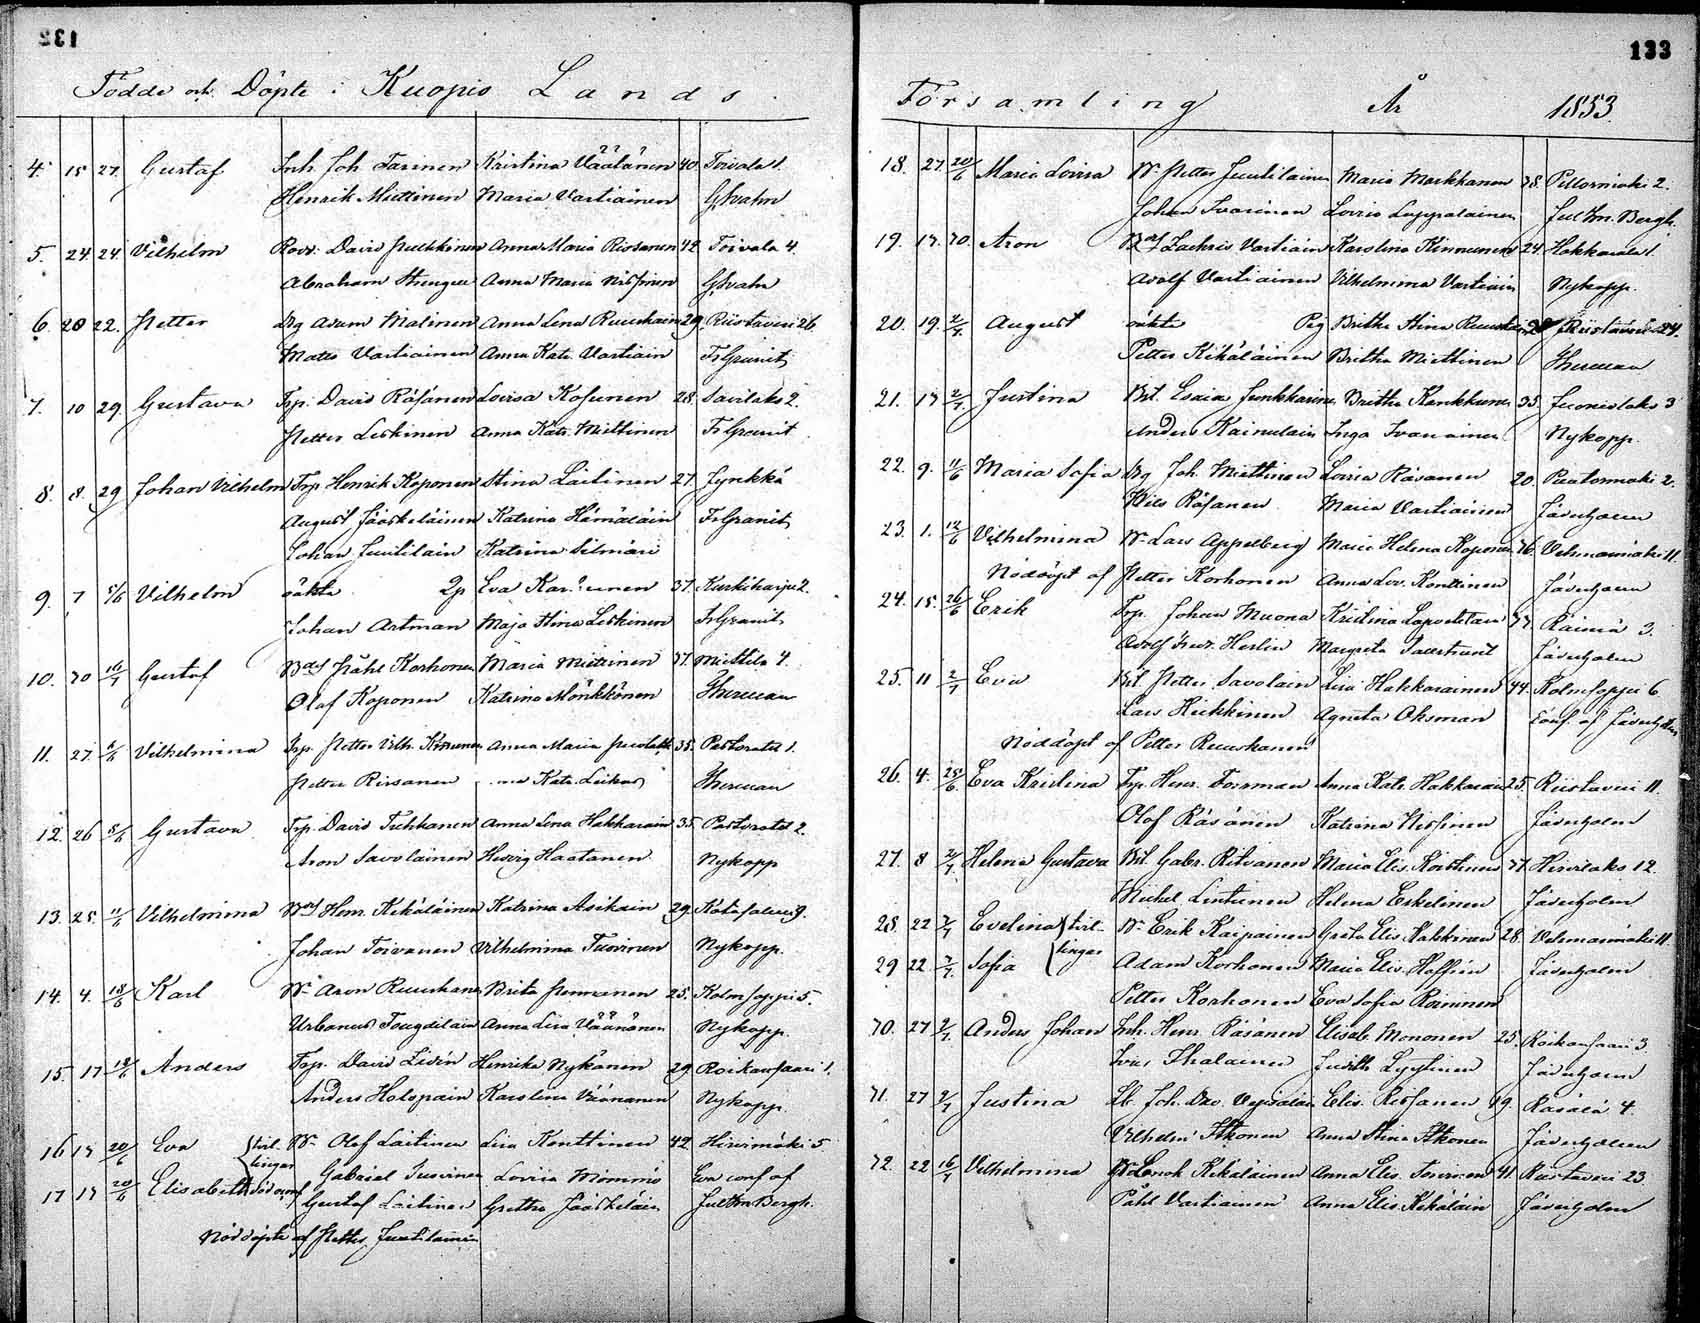 132
Födde och Döpte i Kuopio Lands
4. 15 27. Gustaf Inh. Joh Tarinen Kristina Väätänen 40. Toivala 1.
Henrik Miettinen Maria Vartiainen G. Svahn
5. 24. 24. Vilhelm David Pulkkinen Anna Maria Rissanen 42. Toivala 4.
Abraham Anna Maria Nissinen G. Svahn
6. 20 22. Petter Dg Adam Malinen Anna Lena Ruuskain 29. Riistavesi 26.
Matts Vartiainen Anna Kat. Vartiain Fr Granit
7. 10 29. Gustava Trp. David Räsänen Lovisa Kosunen 28. Savilaks 2.
Petter Leskinen Anna Kat. Miettinen Fr Granit
8. 8. 29 Johan Vilhelm Trp Henrik Koponen Stina Laitinen 27. Jynkkä
August Jääskeläinen Katrina Hämäläin Fr Granit
Johan Juutilain Katrina Silmäri
9. 7 5/6 Vilhelm oäkta Eva 37. Kurkiharju 2.
Johan Artman Maja Stina Leskinen Fr Granit
10. 30 Gustaf Påhl Korhonen Maria Miettinen 37. Miettilä 4.
Olaf Koponen Katrina Mönkkönen Therman
11. 27. Vilhelmina Trp. Petter Vilh. Anna Maria 35. Pastoratet 1.
Petter Rissanen Kat. Therman
12. 26 5/6 Gustava Trp. David Tuhkanen Anna Lena Hakkarain 35. Pastoratet 2.
Aron Savolainen Hedvig Haatanen Nykopp
13. 25. 11/6 Vilhelmina Henr. Kekäläinen Katrina Asikain 29. Kotasalmi 9.
Johan Toivanen Vilhelmina Tuovinen Nykopp.
14. 4. 18/6 Karl Aron Ruuskanen Brita Pennanen 25. Kolmisoppi 5.
Urbanus Tougdilain Anna Lisa Väänänen Nykopp.
15. 17 Anders Trp. David Lidén Henrika Nykänen 29 Roikansaari 1.
Anders Holopain Karolina Väänänen Nykopp.
16 13 20/6 Eva tvil- Olof Laitinen Lisa Konttinen 42. Hirvimäki 5
lingar Gabriel Tuovinen Lovisa Mömmö Eva conf af
17 13 20/6 Elisabeth Gustaf Laitinen Gretha Jääskeläin Jul Hn. Bergh.
Nöddöpte af Petter Juutilainen
133
Församling År 1853.
18. 27. 20/6 Maria Lovisa Petter Juutilainen Maria Markkanen 38. Pellosmäki 2.
Johan Ivarinen Lovisa Lappalainen Jul Hn. Bergh.
19. 13. 30. Aron Zachris Vartiain Karolina Kinnunen 24. Hakkarala 1.
Adolf Vartiainen Vilhelmina Vartiain Nykopp.
20. 19. 2/7. August oäkta Pig Britha Stina Riistavesi 24.
Petter Kekäläinen Britha Miettinen Therman
21. 13 2/7. Justina Bit. Esaias Junkkarinen Britha Kankkunen 35. 3
Anders Kainulain Inga Ivarainen Nykopp.
22. 9. 11/6 Maria Sofia Dg Joh. Miettinen Lovisa Räsänen 20. Puutosmäki 2.
Nils Räsänen Maria Vartiainen Jäderholm
23. 1. 12/6 Vilhelmina Lars Appelberg Maria Helena Koponen 36. Vehmasmäki 11.
Nöddöpt af Petter Korhonen Anna Lov. Konttinen Jäderholm
24. 15. 26/6 Erik Trp. Johan Muona Kristina 37. Räimä 3.
Adolf Fredr. Herlin Margreta Jäderholm
25. 11 2/7 Eva Bit Petter Savolain Lisa Hakkarainen 44. Kolmisoppi 6
Lars Heikkinen Agneta Oksman Conf. af Jäderholm
Nöddöpt af Petter Ruuskanen
26. 4. 25/6. Eva Kristina Trp. Henr. Forsman Anna Kat. Hakkarain 25. Riistavesi 11.
Olof Räsänen Katrina Nissinen Jäderholm
27. 8 2/7 Helena Gustava Bit. Gabr. Ritvanen Maria Elis. Koistinen 37. Hirvilaks 12.
Michel Lintunen Helena Eskelinen Jäderholm
28. 22 7/7 Evelina tvil- Erik Kaipainen Greta Elis. Hakkinen 28. Vehmasmäki 11.
29 22. 7/7. Sofia lingar Adam Korhonen Maria Elis. Jäderholm
Petter Korhonen Eva Sofia Roininen
30. 27 2/7. Anders Johan Inh. Henr. Räsänen Elisab. Mononen 25. Roikansaari 3.
Judith Lyytinen Jäderholm
31. 27 2/7 Justina Joh. Dav. Vepsäläin Elis. Rissanen 39. Räsälä 4.
Vilhelm Itkonen Anna Stina Itkonen Jäderholm
32. 22 16/7 Vilhelmina Enok Kekäläinen Anna Elis. Tuovinen 41. Riistavesi 23.
Påhl Vartiainen Anna Elis. Kekäläin Jäderholm